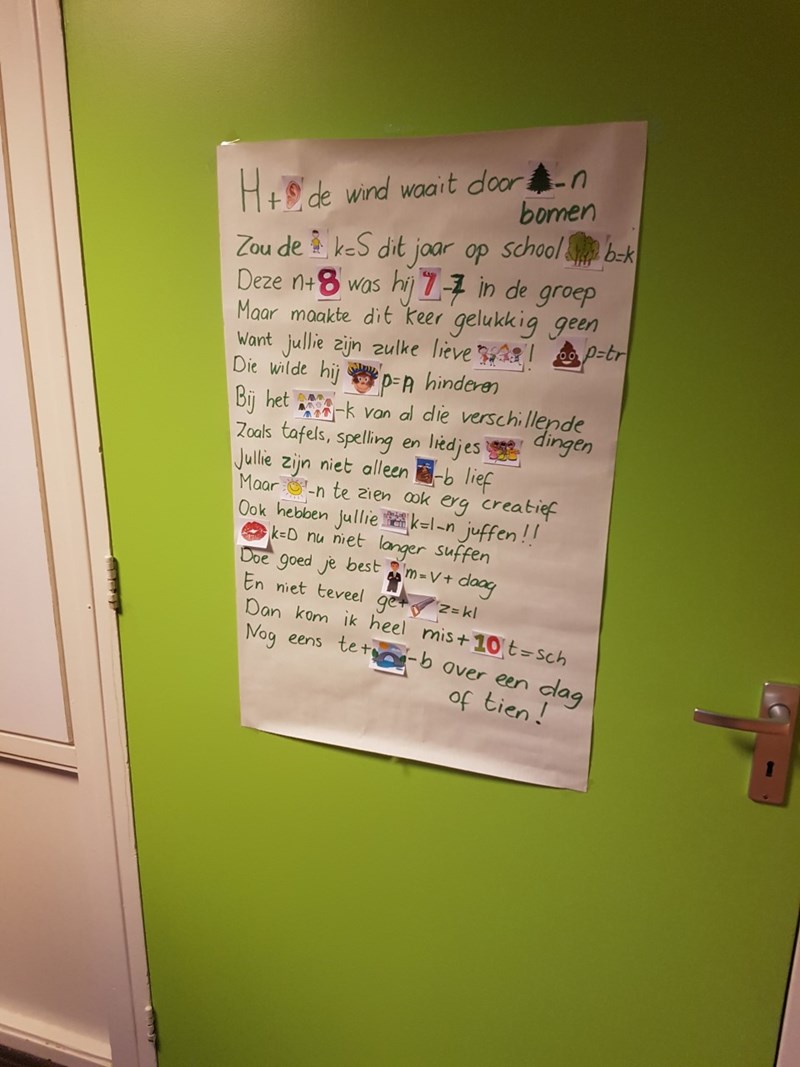 H+ de wind waait door -n
bomen
Zou de k=S dit jaar op school b=k
Deze n+8 was hij 7-z in de groep
Maar maakte dit keer gelukkig geen
Want jullie zijn zulke lieve ! p=tr
Die wilde hij p=n hinderen
Bij het -k van al die verschillende
dingen
Zoals tafels, spelling en liedjes
Jullie zijn niet alleen -b lief
Maar -n te zien ook erg creatief
Ook hebben jullie k=l-n juffen!!
k=D nu niet langer suffen
Doe goed je best m=v+daag
En niet teveel ge+ z=kl
Dan kom ik heel mis+10 t=sch
Nog eens te+ -b over een dag
of tien!